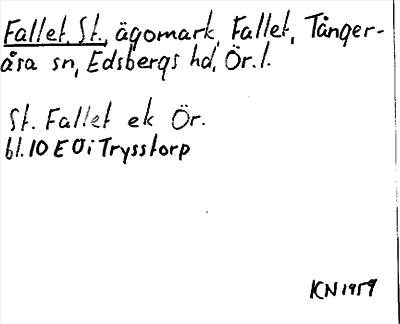 Fallet, St., ägomark, Fallet, Tånger-
åsa sn, Edsbergs hd, Ör. l.
St. Fallet ek Ör.
bl. 10 E Ö i Trysstorp
KN 1959